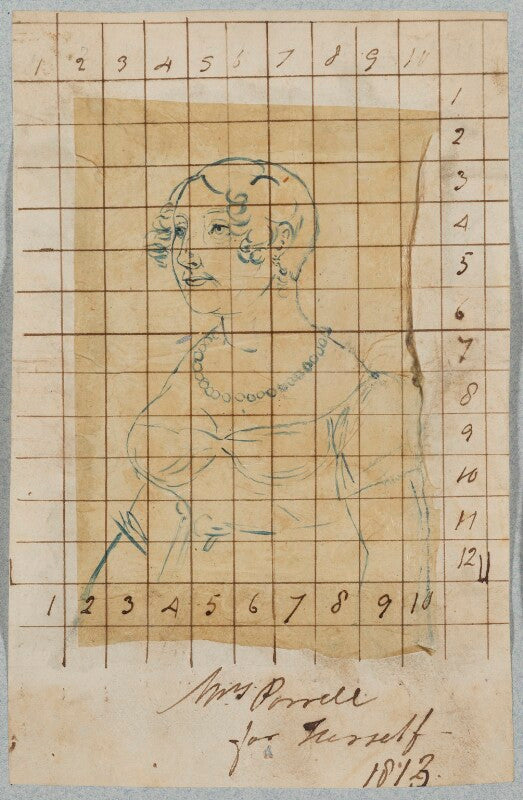 1 2 3 4 5 6 7 8 9 10
1
2
3
4
5
6
7
8
9
10
11
12
1 2 3 4 5 6 7 8 9 10
Mrs Powell
for Herself
1813.